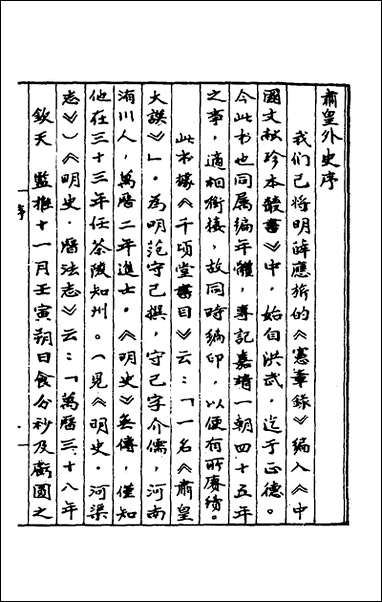 肅皇外史序
我们已将明薛應旂的《憲章錄》编入《中
國文献珍本叢書》中，始自洪武，迄于正德。
今此书也同属编年體，專记嘉靖一朝四十五年
之事，適相銜接，故同時编印，以便有所賡续。
此书據《千顷堂書目》云：「一名《肅皇
大謨》」。为明范守己撰，守己字介儒，河南
洧川人，萬曆二年進士。《明史》無傳，僅知
他在三十三年任茶陵知州。（見《明史·河渠
志》）《明史 曆法志》云：「萬曆三十八年
欽天 監推十一月壬寅朔日食分秒及虧圓之
序
一